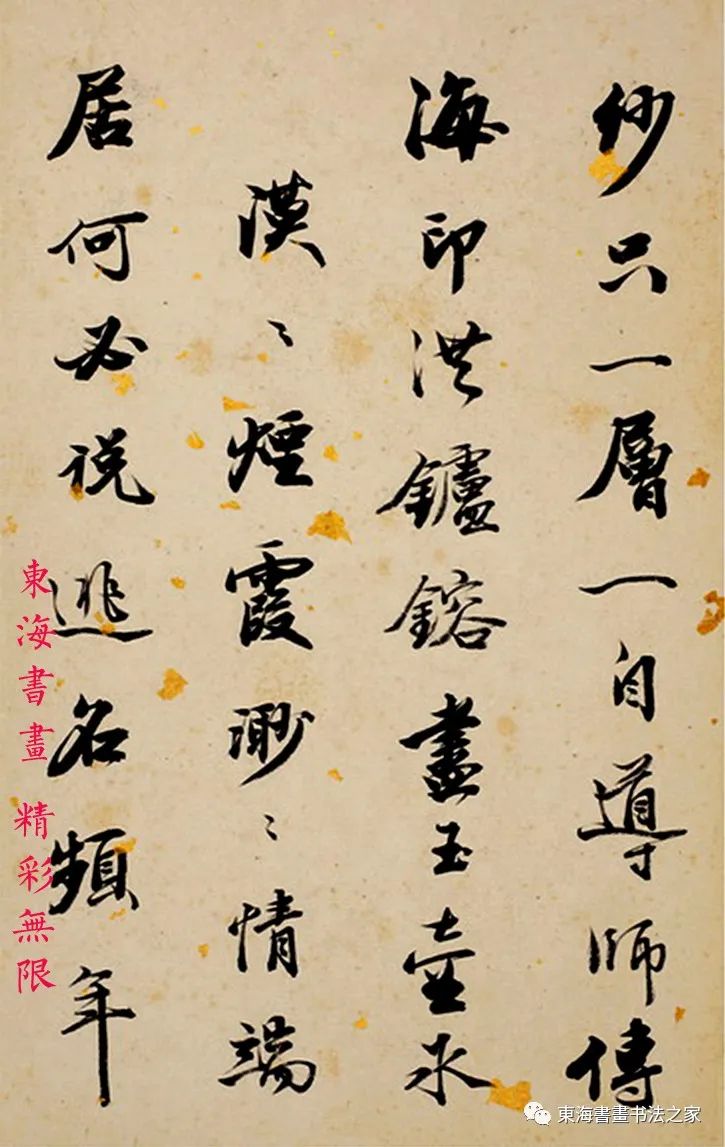 紗只一層一自導師傳
海印洪鑪鎔盡玉壺氷
漠〻煙霞渺〻情端
居何必說逃名頻年
東海書畫 精彩無限
東海書畫书法之家